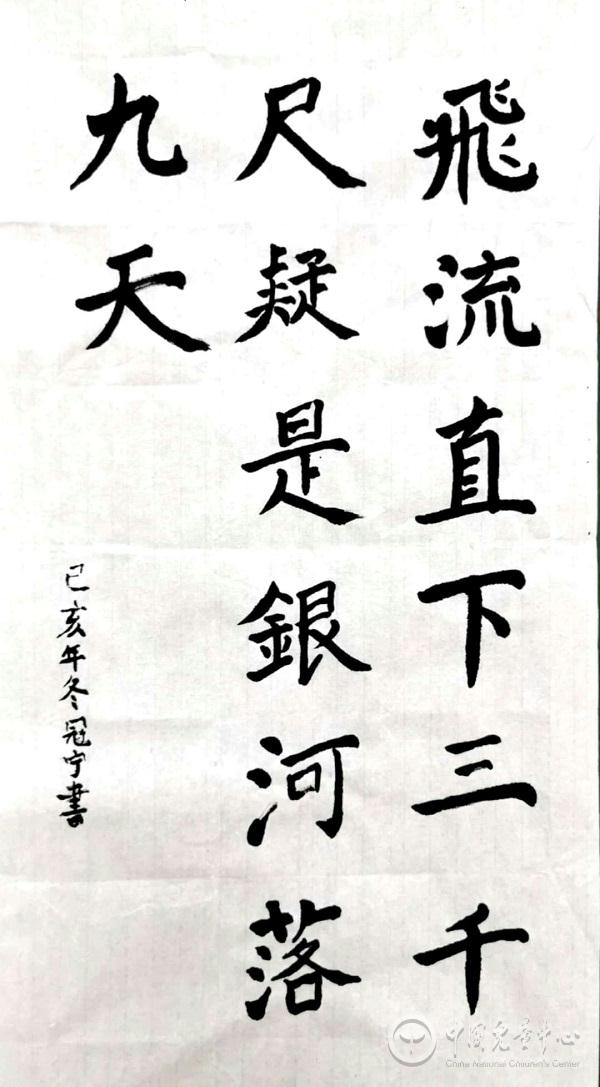 飛流直下三千
尺疑是銀河落
九天
己亥年冬冠宁書
中国儿童中心
China National Children's Center